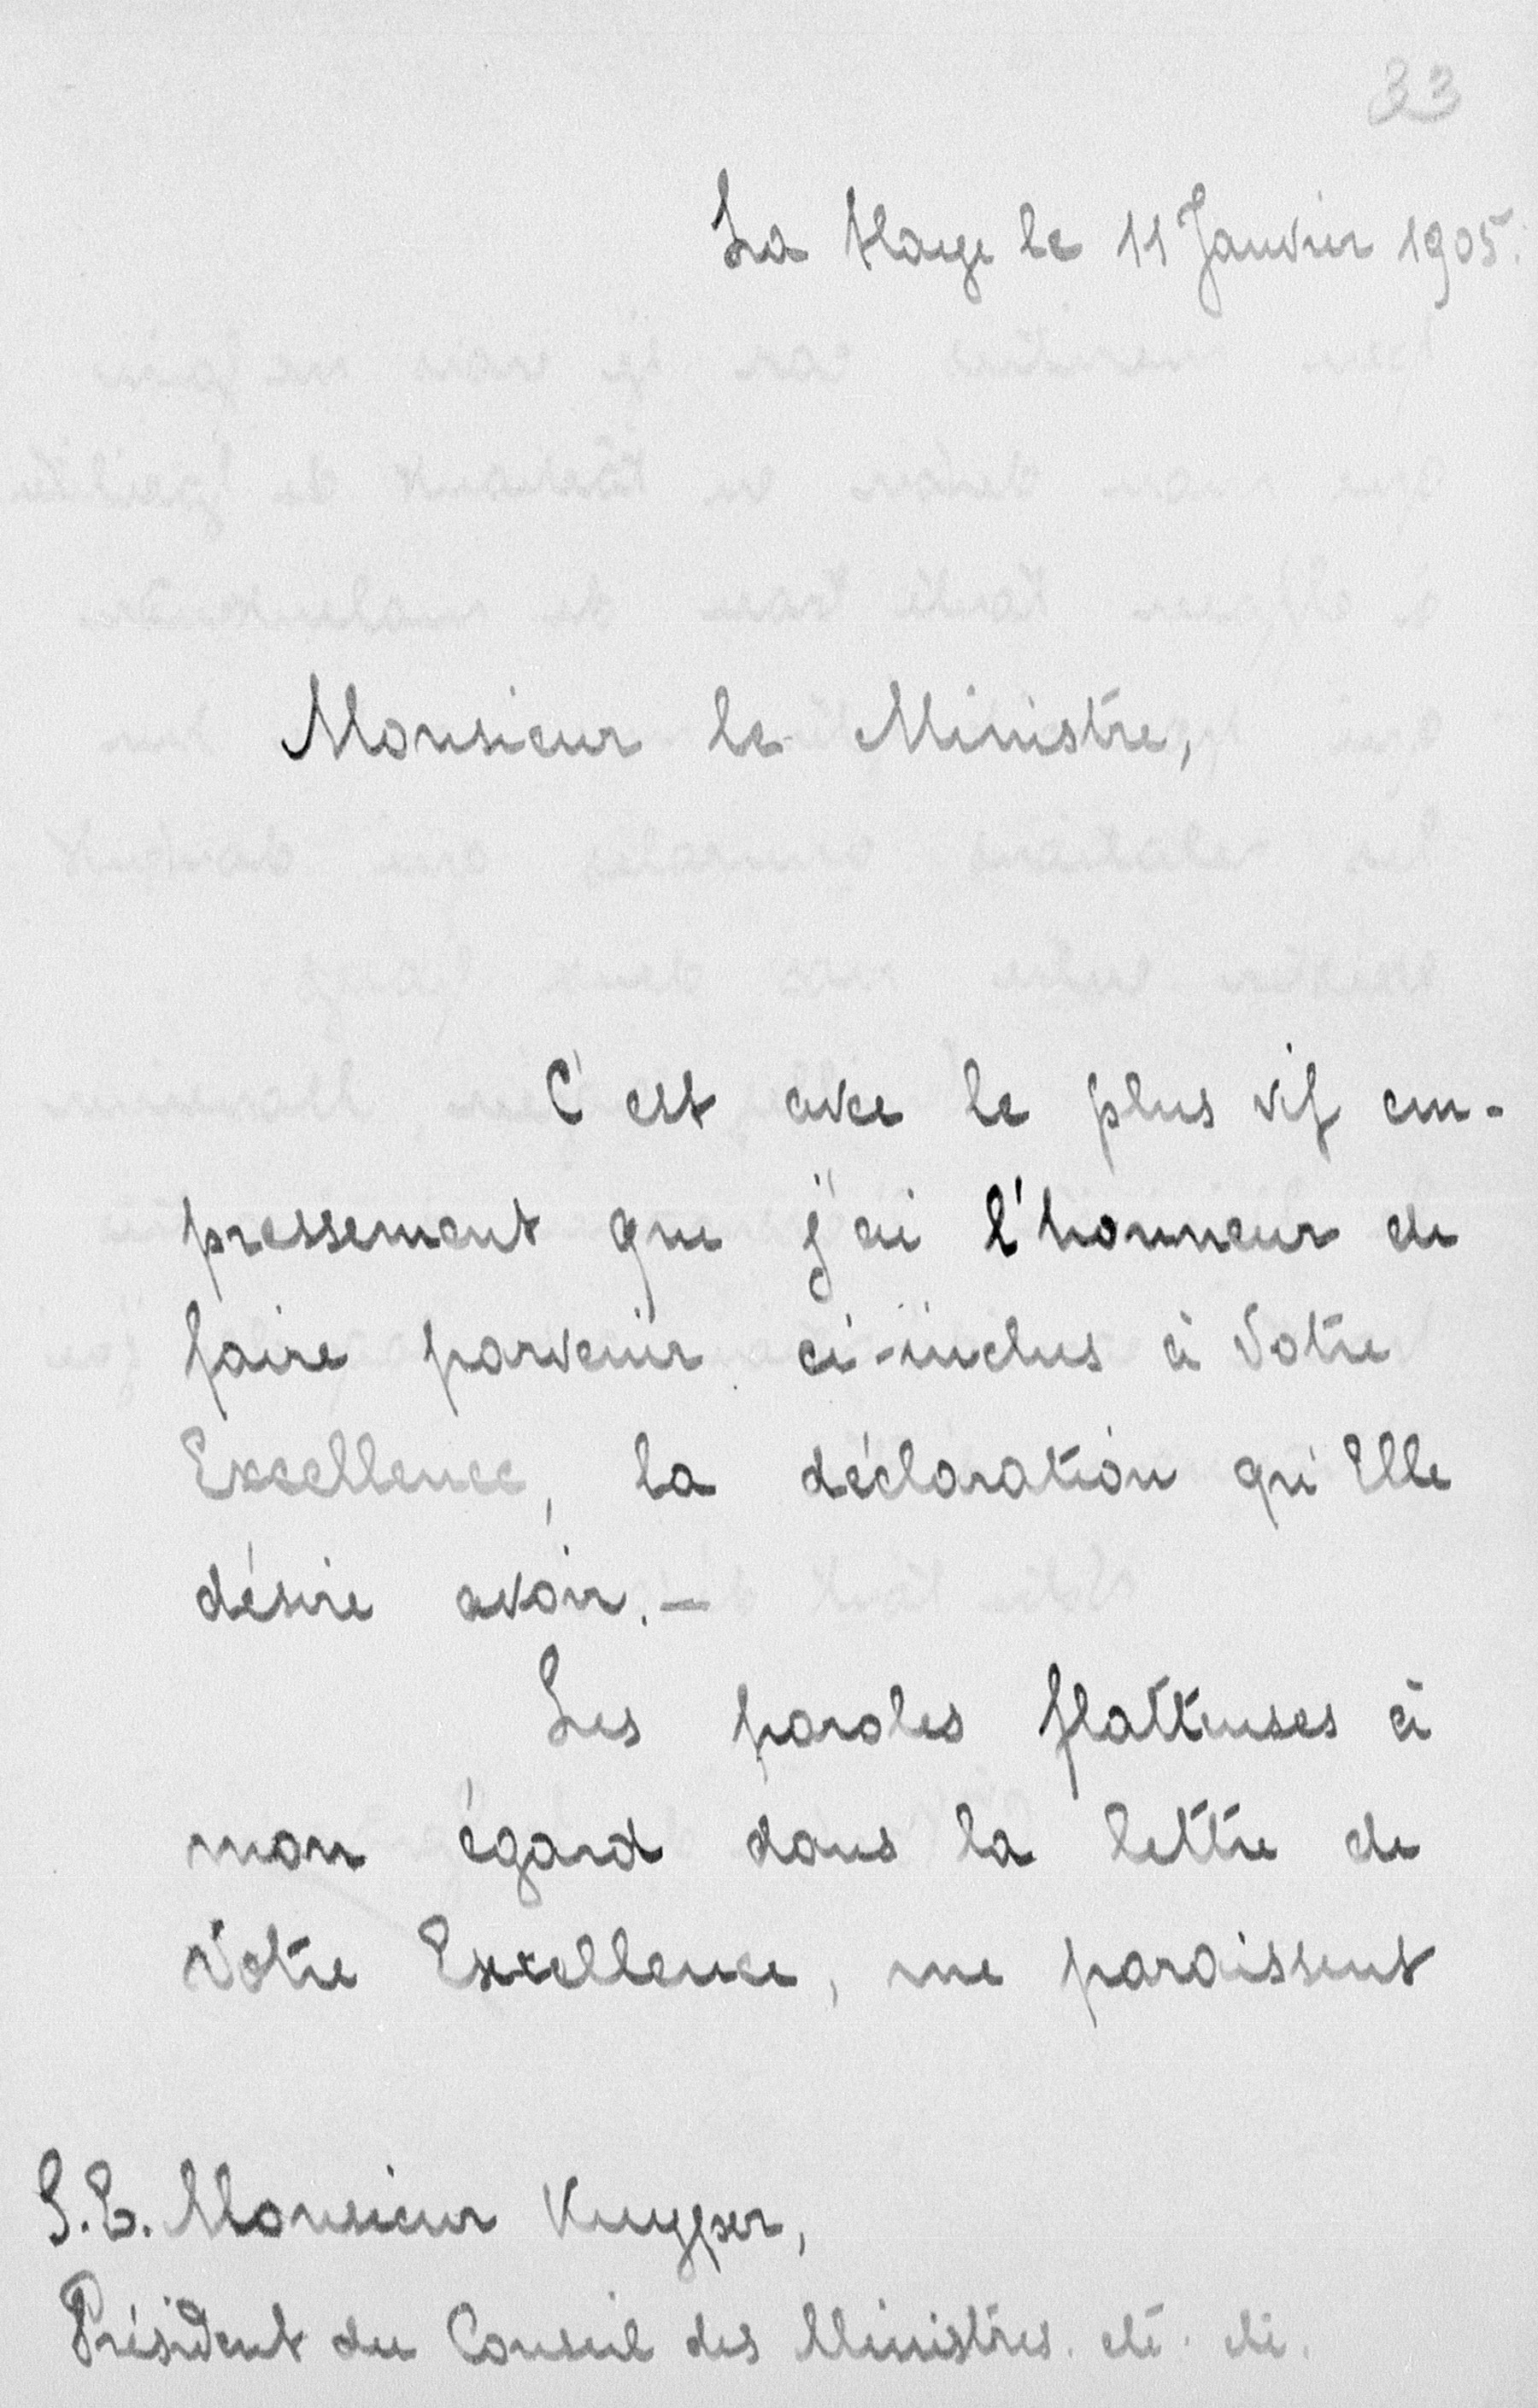 33
La Haye le 11 Janvier 1905.
Monsieur le Ministre,
C'est avec le plus vif em-
pressement que j'ai l'honneur de
faire parvenir ci-inclus à Votre
Excellence, la déclaration qu'Elle
désire avoir.—
Les paroles flatteuses à
mon égard dans la lettre de
Votre Excellence, me paraissent
S.E. Monsieur Kuyper,
Président du Conseil des Ministres. etc. etc.